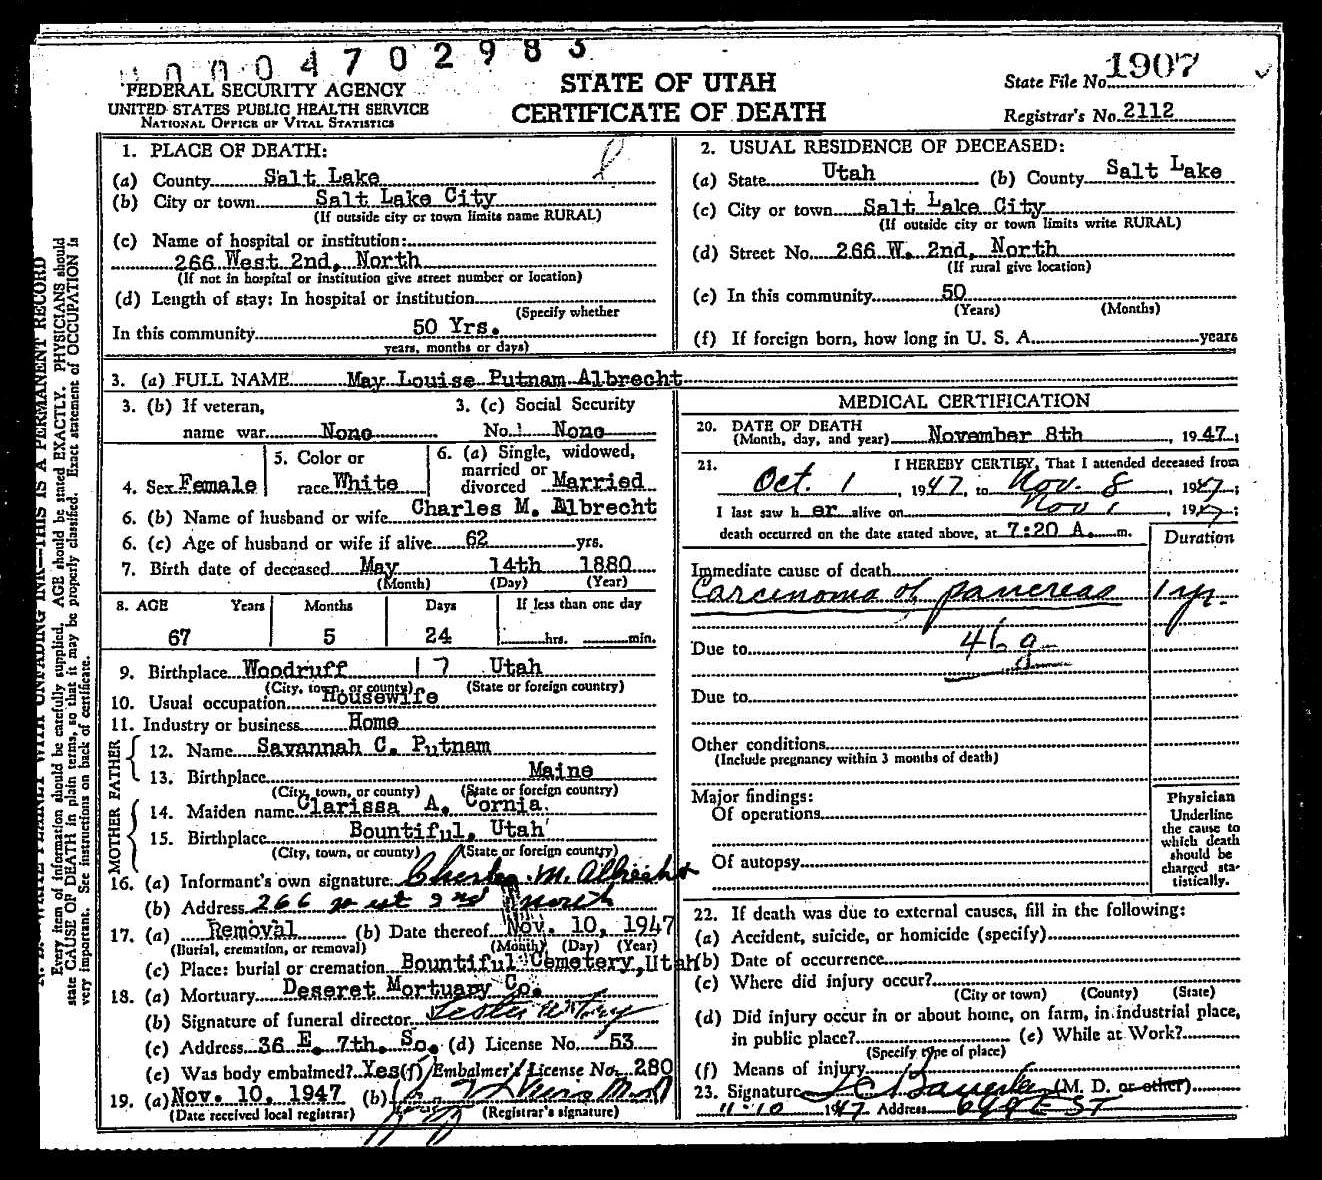 0004702983
FEDERAL SECURITY AGENCY
UNITED STATES PUBLIC HEALTH SERVICE
NATIONAL OFFICE OF VITAL STATISTICS
STATE OF UTAH
CERTIFICATE OF DEATH
State File No. 1907
Registrar's No. 2112
1. PLACE OF DEATH:
(a) County Salt Lake
(b) City or town Salt Lake City
(If outside city or town limits name RURAL)
(c) Name of hospital or institution:
266 West 2nd, North
(If not in hospital or institution give street number or location)
(d) Length of stay: In hospital or institution
(Specify whether
In this community 50 Yrs.
years, months or days)
2. USUAL RESIDENCE OF DECEASED:
(a) State Utah (b) County Salt Lake
(c) City or town Salt Lake City
(If outside city or town limits write RURAL)
(d) Street No. 266 W. 2nd, North
(If rural give location)
(e) In this community 50
(Years) (Months)
(f) If foreign born, how long in U. S. A. years
3. (a) FULL NAME May Louise Putnam Albrecht
3. (b) If veteran, 3. (c) Social Security
name war None No. None
4. Sex Female 5. Color or race White 6. (a) Single, widowed, married or divorced Married
6. (b) Name of husband or wife Charles M. Albrecht
6. (c) Age of husband or wife if alive 62 yrs.
7. Birth date of deceased May 14th 1880
(Month) (Day) (Year)
8. AGE Years Months Days If less than one day
67 5 24 hrs. min.
9. Birthplace Woodruff 17 Utah
(City, town, or county) (State or foreign country)
10. Usual occupation Housewife
11. Industry or business Home
FATHER
12. Name Savannah C. Putnam
13. Birthplace Maine
(City, town, or county) (State or foreign country)
MOTHER
14. Maiden name Clarissa A. Cornia.
15. Birthplace Bountiful, Utah
(City, town, or county) (State or foreign country)
16. (a) Informant's own signature Charles M. Albrecht
(b) Address 266 west 2nd north
17. (a) Removal (b) Date thereof Nov. 10, 1947
(Burial, cremation, or removal) (Month) (Day) (Year)
(c) Place: burial or cremation Bountiful Cemetery, Utah
18. (a) Mortuary Deseret Mortuary Co.
(b) Signature of funeral director
(c) Address 36 E. 7th. So. (d) License No. 53
(e) Was body embalmed? Yes (f) Embalmer's License No. 280
19. (a) Nov. 10, 1947 (b)
(Date received local registrar) (Registrar's signature)
MEDICAL CERTIFICATION
20. DATE OF DEATH
(Month, day, and year) November 8th, 1947;
21. I HEREBY CERTIFY, That I attended deceased from
Oct. 1, 1947, to Nov. 8, 1947;
I last saw her alive on Nov 1, 1947;
death occurred on the date stated above, at 7:20 A. m.
Duration
Immediate cause of death
Carcinoma of pancreas 1 yr.
Due to 46 a
Due to
Other conditions
(Include pregnancy within 3 months of death)
Major findings:
Of operations
Of autopsy
Physician
Underline
the cause to
which death
should be
charged sta-
tistically.
22. If death was due to external causes, fill in the following:
(a) Accident, suicide, or homicide (specify)
(b) Date of occurrence
(c) Where did injury occur?
(City or town) (County) (State)
(d) Did injury occur in or about home, on farm, in industrial place,
in public place? (e) While at Work?
(Specify type of place)
(f) Means of injury
23. Signature (M. D. or other)
11-10 1947 Address
WRITE PLAINLY WITH UNFADING INK—THIS IS A PERMANENT RECORD
Every item of information should be carefully supplied. AGE should be stated EXACTLY. PHYSICIANS should
state CAUSE OF DEATH in plain terms, so that it may be properly classified. Exact statement of OCCUPATION is
very important. See instructions on back of certificate.